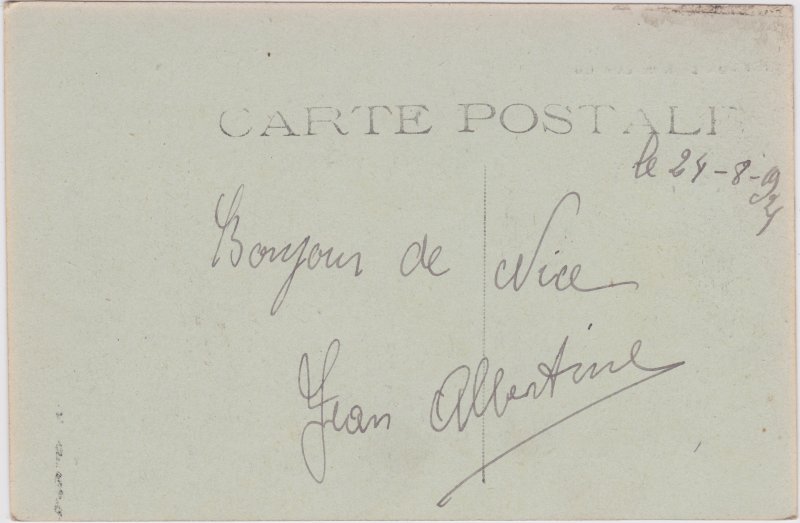 CARTE POSTALE
le 24-8-934
Bonjour de Nice
Jean Albertine